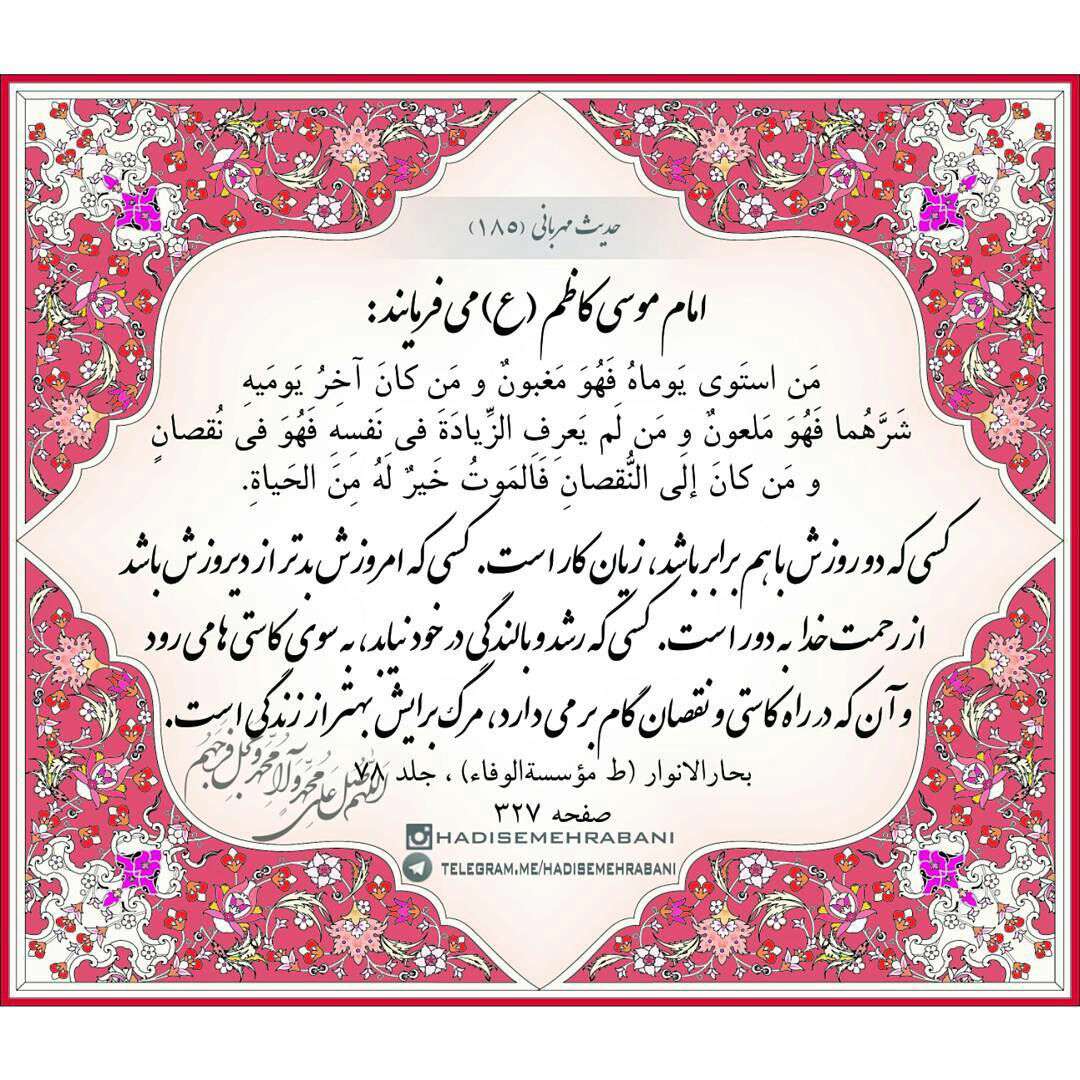 حدیث مهربانی (۱۸۵)
امام موسی کاظم (ع) می فرمایند:
مَن استَوی یَوماهُ فَهُوَ مَغبونٌ و مَن کانَ آخِرُ یَومَیهِ
شَرَّهُما فَهُوَ مَلعونٌ وَ مَن لَم یَعرِفِ الزِّیادَةَ فی نَفسِهِ فَهُوَ فی نُقصانٍ
و مَن کانَ إلَی النُّقصانِ فَالمَوتُ خَیرٌ لَهُ مِنَ الحَیاةِ.
کسی که دو روزش با هم برابر باشد، زیان کار است. کسی که امروزش بدتر از دیروزش باشد
از رحمت خدا به دور است. کسی که رشد و بالندگی در خود نیابد، به سوی کاستی ها می رود
و آن که در راه کاستی و نقصان گام بر می دارد، مرگ برایش بهتر از زندگی است.
بحارالانوار (ط مؤسسةالوفاء) ، جلد ۷۸
صفحه ۳۲۷
اللهم صل علی محمد و آل محمد و عجل فرجهم
HADISEMEHRABANI
TELEGRAM.ME/HADISEMEHRABANI